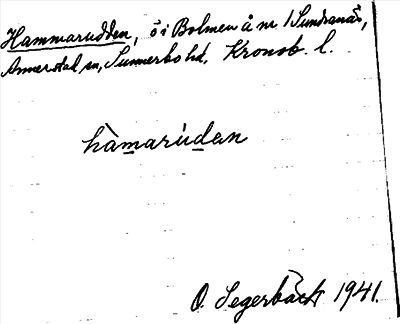 Hammarudden, ö i Bolmen å nr 1 Sundranäs,
Annerstad sn, Sunnerbo hd, Kronob. l.
hàmarùdan
O. Segerbäck 1941.